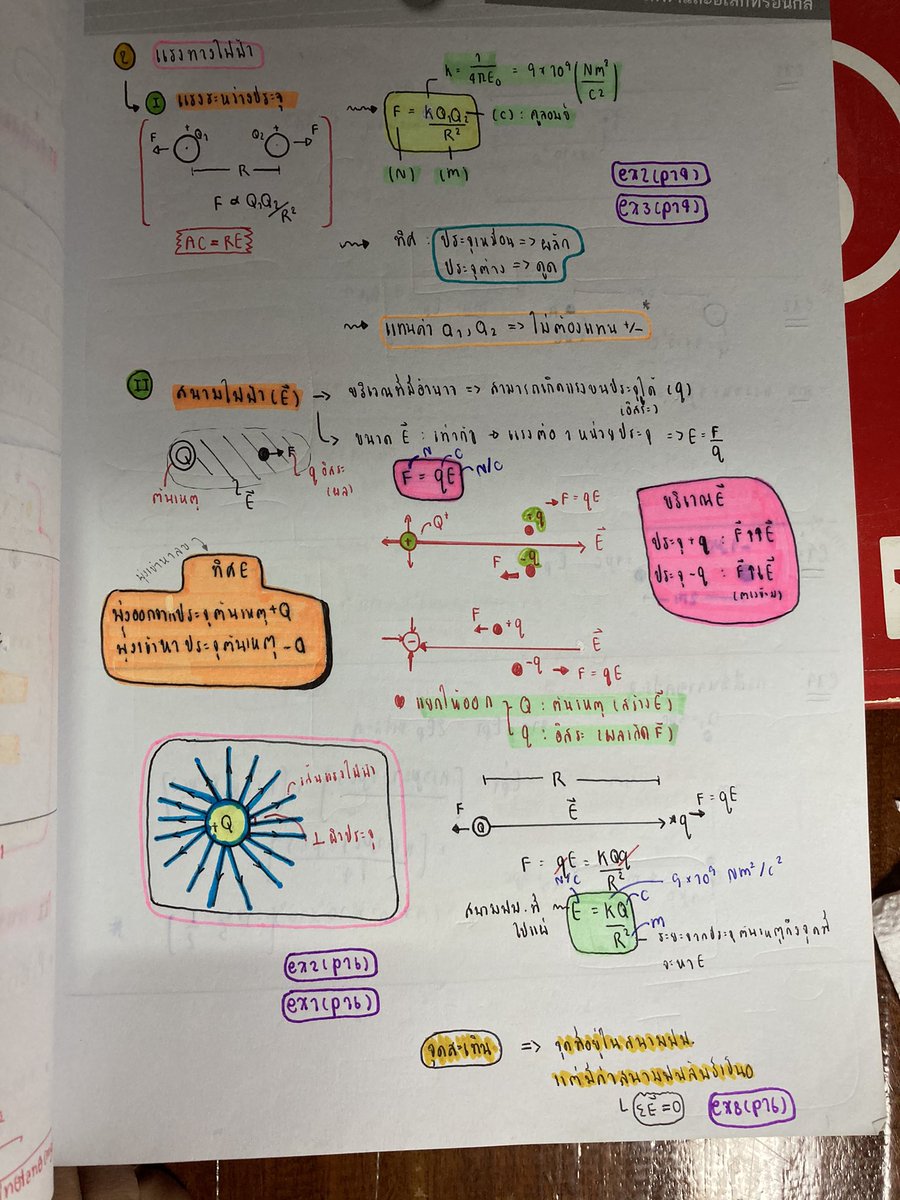 2 แรงทางไฟฟ้า
I แรงระหว่างประจุ
K = 1/4πε₀ = 9×10⁹ (Nm²/C²)
F = KQ₁Q₂/R²
(C) : คูลอมบ์
(N) (m)
F Q₁ Q₂ F
R
F ∝ Q₁Q₂/R²
AC = RE
ex2(p79)
ex3(p79)
ทิศ : ประจุเหมือน => ผลัก
ประจุต่าง => ดูด
แทนค่า Q₁, Q₂ => ไม่ต้องแทน +/- *
II สนามไฟฟ้า (E⃗) → บริเวณที่มีอำนาจ => สามารถเกิดแรงบนประจุได้ (q)
(อิสระ)
ขนาด E⃗ : เท่ากับ → แรงต่อ 1 หน่วยประจุ => E = F/q
Q F
q อิสระ
(ผล)
ต้นเหตุ E⃗
N C
F = qE N/C
Q⁺ +q F = qE
E⃗
F -q
บริเวณ E⃗
ประจุ +q : F⃗↑↑E⃗
ประจุ -q : F⃗↑↓E⃗
(ตรงข้าม)
ทิศ E
พุ่งออกจากประจุต้นเหตุ +Q
พุ่งเข้าหาประจุต้นเหตุ -Q
F +q
E⃗
-q F = qE
แยกให้ออก Q : ต้นเหตุ (สร้าง E⃗)
q : อิสระ (ผลเกิด F⃗)
+Q
เส้นแรงไฟฟ้า
⊥ ผิวประจุ
R
F Q E⃗ q F = qE
F = qE = KQq/R²
N/C 9×10⁹ Nm²/C²
E = KQ/R² C
m
ระยะจากประจุต้นเหตุถึงจุดที่
จะหา E
สนามฟฟ. ที่
ex2(p76)
ex1(p76)
จุดสะเทิน => จุดที่อยู่ในสนามฟฟ.
แต่มีค่าสนามฟฟลัพธ์เป็น 0
ΣE⃗ = 0
ex8(p76)